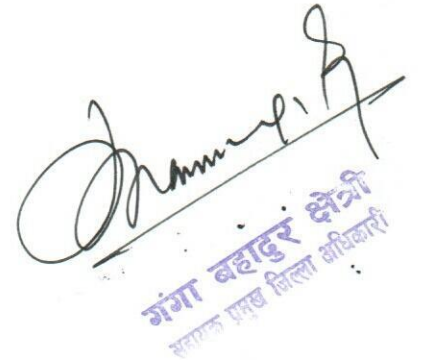 गंगा बहादुर क्षेत्री
सहायक प्रमुख जिल्ला अधिकारी